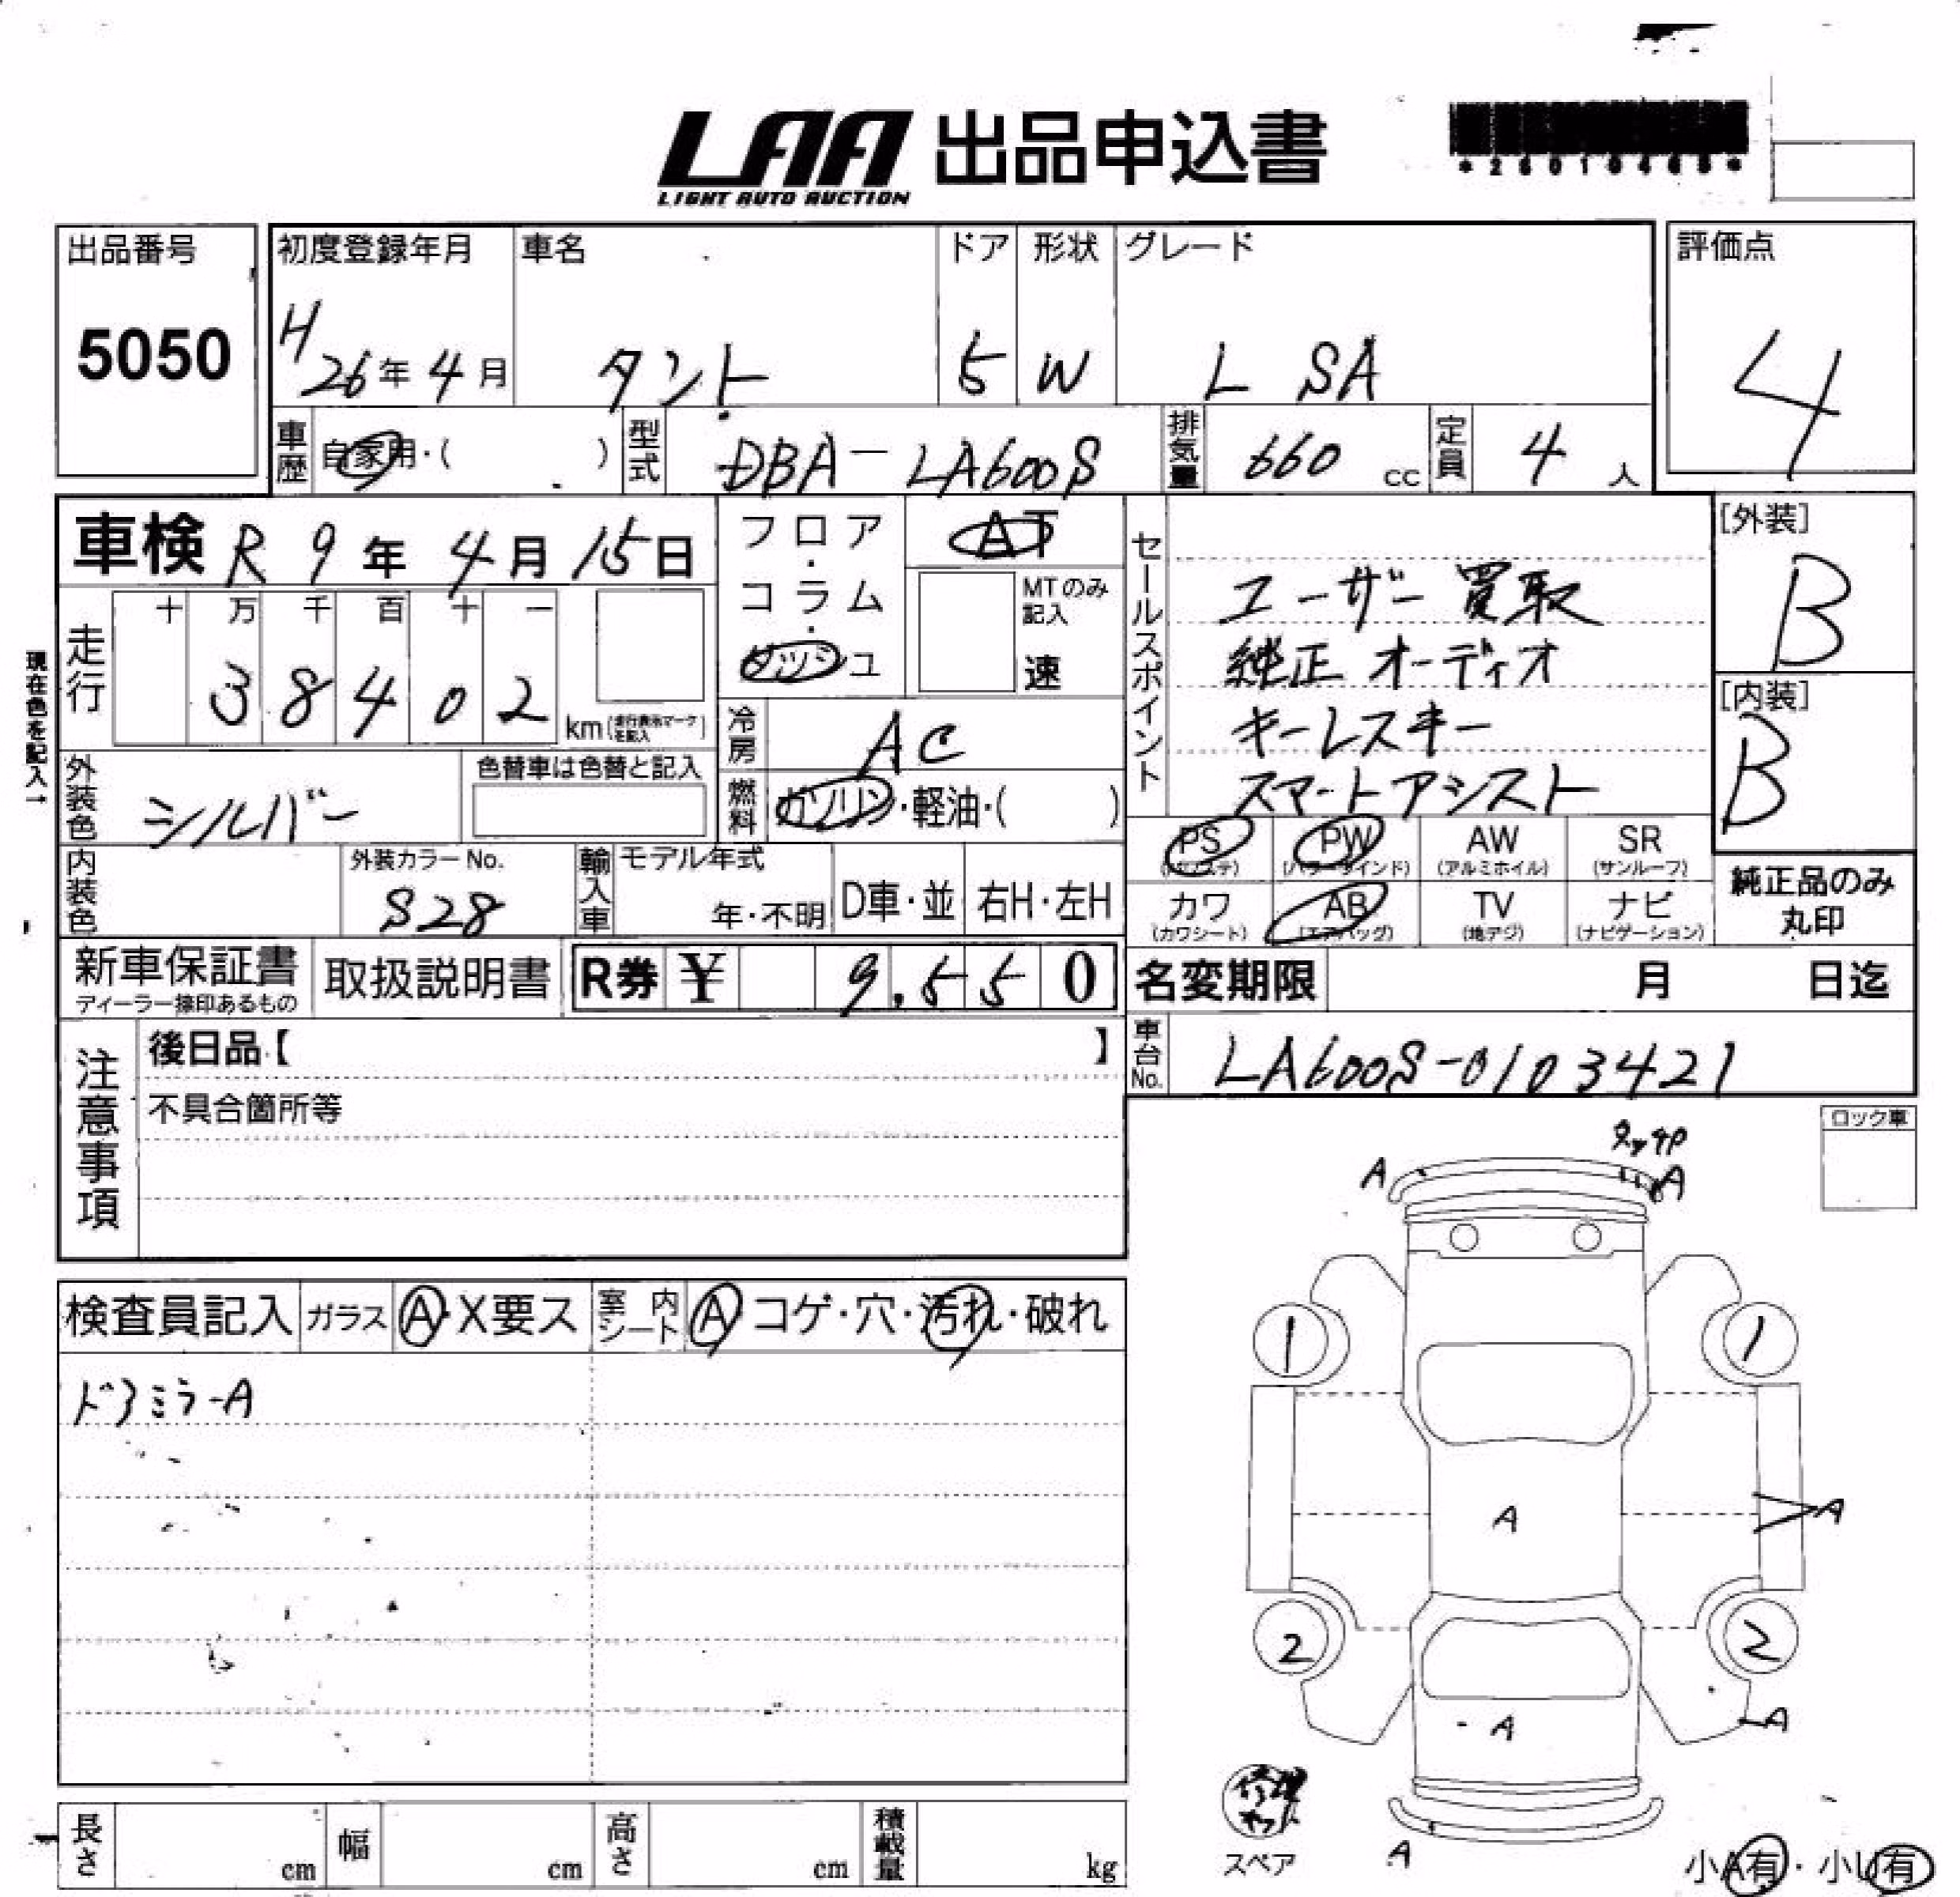 LAA 出品申込書
LIGHT AUTO AUCTION
出品番号
5050
初度登録年月
H 26年 4月
車名
タント
ドア
5
形状
W
グレード
L SA
評価点
4
車歴 自家用・( )
型式 DBA-LA600S
排気量 660 cc
定員 4 人
車検 R 9年 4月 15日
現在色を記入→
走行
十 万 千 百 十 一
3 8 4 0 2 km
外装色 シルバー
色替車は色替と記入
内装色
外装カラーNo.
S28
輸入車 モデル年式
年・不明 D車・並 右H・左H
フロア・コラム・ダッシュ
AT
MTのみ記入
速
冷房 AC
燃料 ガソリン・軽油・( )
セールスポイント
ユーザー買取
純正オーディオ
キーレスキー
スマートアシスト
[外装]
B
[内装]
B
PS PW AW SR
(パワステ) (パワーウインド) (アルミホイル) (サンルーフ)
カワ AB TV ナビ
(カワシート) (エアバッグ) (地デジ) (ナビゲーション)
純正品のみ
丸印
新車保証書
ディーラー捺印あるもの
取扱説明書
R券 ¥ 9,550
名変期限 月 日迄
車台No. LA600S-0103421
注意事項
後日品【 】
不具合箇所等
ロック車
検査員記入 ガラス A・X要ス 室内シート A コゲ・穴・汚れ・破れ
ドアミラーA
タッチP
A A
1 1
A A
2 2
A A
修理キット
スペア
A
小A有・小U有
長さ cm 幅 cm 高さ cm 積載量 kg